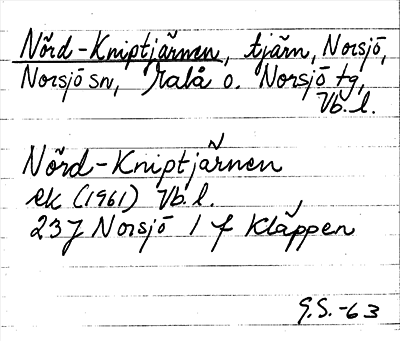 Nörd-Kniptjärnen, tjärn, Norsjö,
Norsjö sn, Malå o. Norsjö tg,
Vb. l.
Nörd-Kniptjärnen
ek (1961) Vb. l.
23J Norsjö 1 f Kläppen
G.S.-63